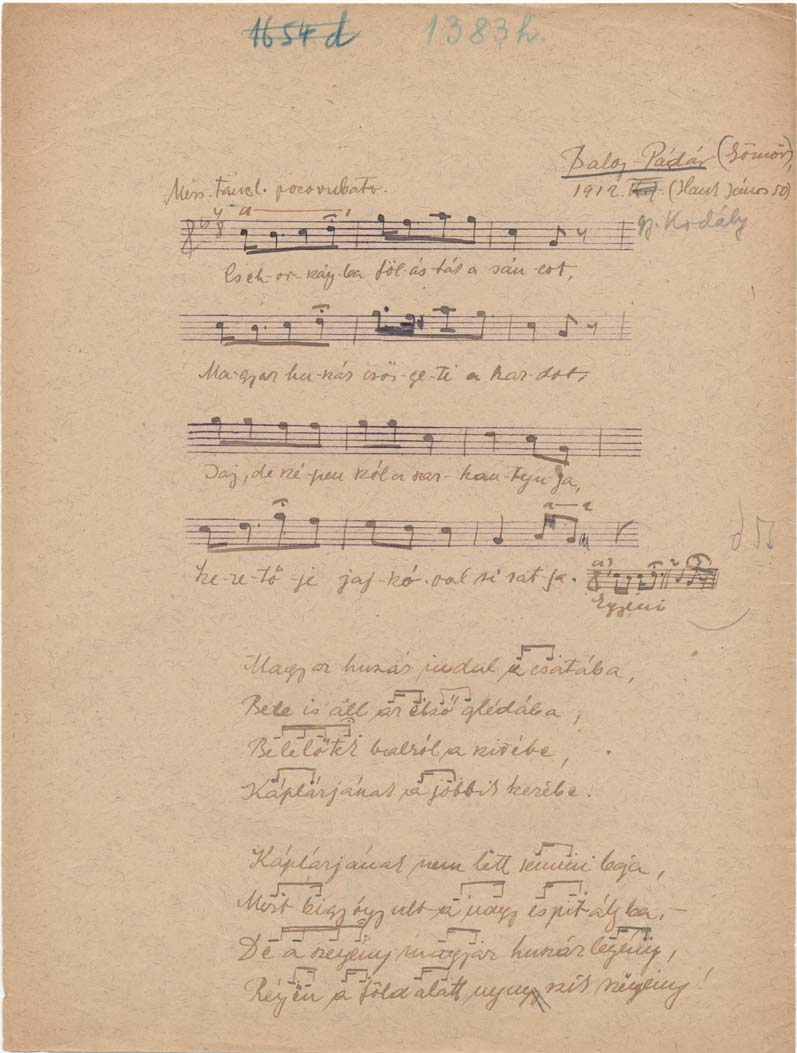 1654 d 1383 h.
Balog-Pádár (Gömör),
1912. (Hank János 50)
gy. Kodály
poco rubato.
Cseh-or-ság-ba föl-ás-ták a sán-cot,
Ma-gyar hu-szár csör-ge-ti a kar-dot;
Jaj, de szé-pen szól a sar-kan-tyu-ja,
Sze-re-tő-je jaj-szó-val si-rat-ja.
Egyéni
Magyar huszár indul a csatába,
Bele is áll az első glédába,
Belelőttek balról a szivébe,
Káplárjának a jobbik kezébe.
Káplárjának nem lett semmi baja,
Most kigyógyult a nagy espitályba. –
De a szegény magyar huszár legény,
Régën a föld alatt nyugszik szëgény!